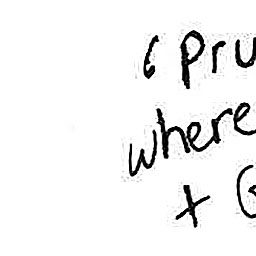 6 pru
where
+ G